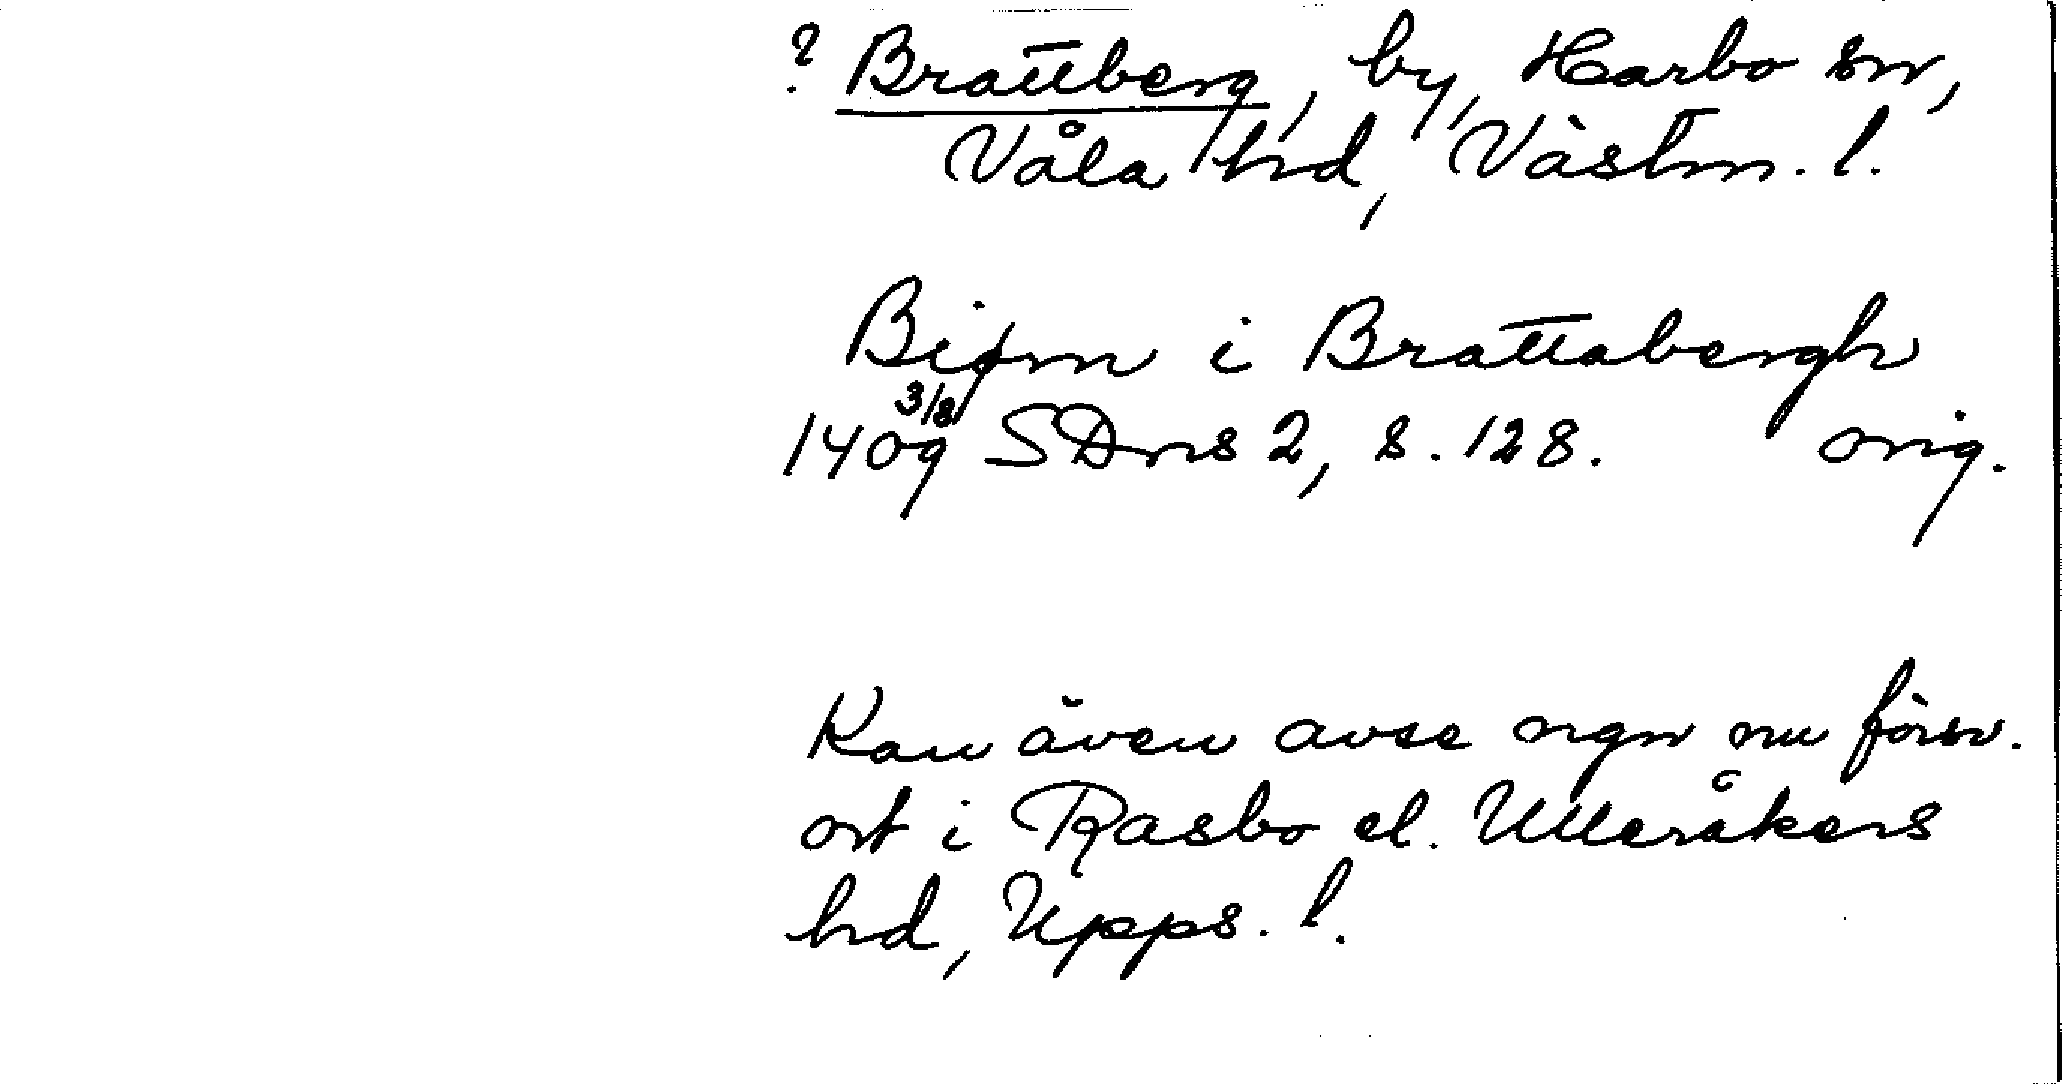 ? Brattberg, by, Harbo sn,
Våla hd, Västm. l.
Biørn i Brattabergh
1409 3/8 SDns 2, s. 128. orig.
Kan även avse ngn nu försv.
ort i Rasbo el. Ulleråkers
hd, Upps. l.